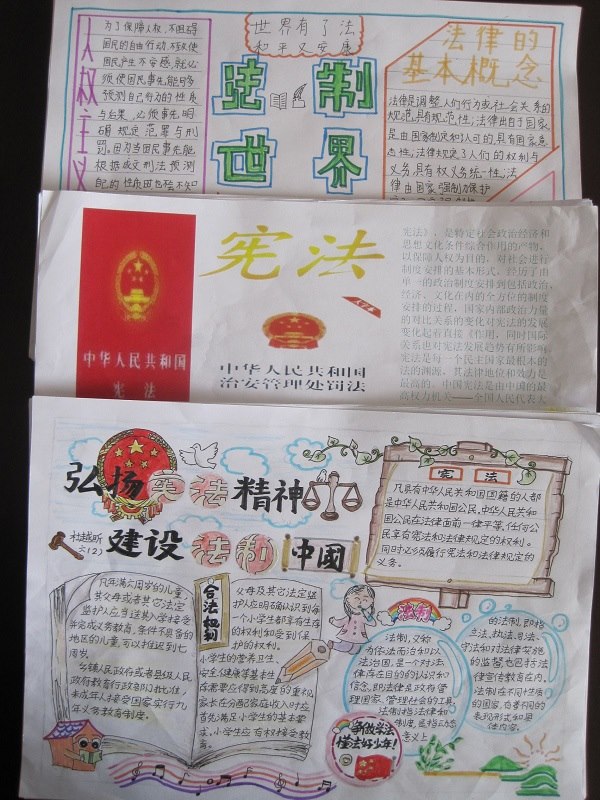 人权主义
为了保障人权,不阻碍
国民的自由行动,不致使
国民产生不安感,就必
须使国民事先能够
预测自己行为的性质
与后果,必须事先明
确规定犯罪与刑
罚。因为当国民事先能
根据成文刑法预测
自己的性质
世界有了法
和平又安康
法制
世界
法律的
基本概念
法律是调整人们行为或社会关系的
规范,具有规范性;法律出自于国家,
是由国家制定和认可的,具有国家意
志性;法律规定了人们的权利与
义务,具有权义务统一性;法
律由国家强制力保护
宪法
大字本
中华人民共和国
宪法
中华人民共和国
治安管理处罚法
宪法》,是特定社会政治经济和
思想文化条件综合作用的产物,
以保障人权为目的,对社会进行
制度安排的基本形式,经历了由
单一的政治制度安排到包括政治、
经济、文化在内的全方位的制度
安排的过程,国家内部政治力量
的对比关系的变化对宪法的发展
变化起着直接《作用,同时国际
关系也对宪法发展趋势有所影响。
宪法是每一个民主国家最根本的
法的渊源,其法律地位和效力是
最高的。中国宪法是由中国的最
高权力机关——全国人民代表大
弘扬宪法精神
六(2)
建设法和中国
宪法
凡具有中华人民共和国国籍的人都
是中华人民共和国公民,中华人民共和
国公民在法律面前一律平等,任何公
民享有宪法和法律规定的权利,
同时必须履行宪法和法律规定的
义务。
凡年满六周岁的儿童,
其父母或者其它法定
监护人应当送其入学接受
并完成义务教育,条件不具备的
地区的儿童,可以推迟到七
周岁。
乡镇人民政府或者县级人民
政府教育行政部门批准,
未成年人接受国家实行九
年义务教育制度。
合法权利
父母及其它法定监
护人应明确认识到每
个小学生都享有生存
的权利和受到保
护的权利。
小学生的营养卫生、
安全健康等基本生
存需要应得到高度的重视,
家长在分配家庭收入时应
首先满足小学生的基本需
求,小学生应有权接受教
育。
法制
法制,又称
为依法而治和以
法治国,是一个对法
律存在目的的认识和
信念,即法律是政府管
理国家、管理社会的工具,
法制指法律和
制度,是指动态
意义上
的法制,即指
立法、执法、司法、
守法和对法律实施
的监督也包括法
律宣传教育在内,
法制在不同性质
的国家,有着不同的
表现形式和具
体内容。
争做学法
懂法好少年!